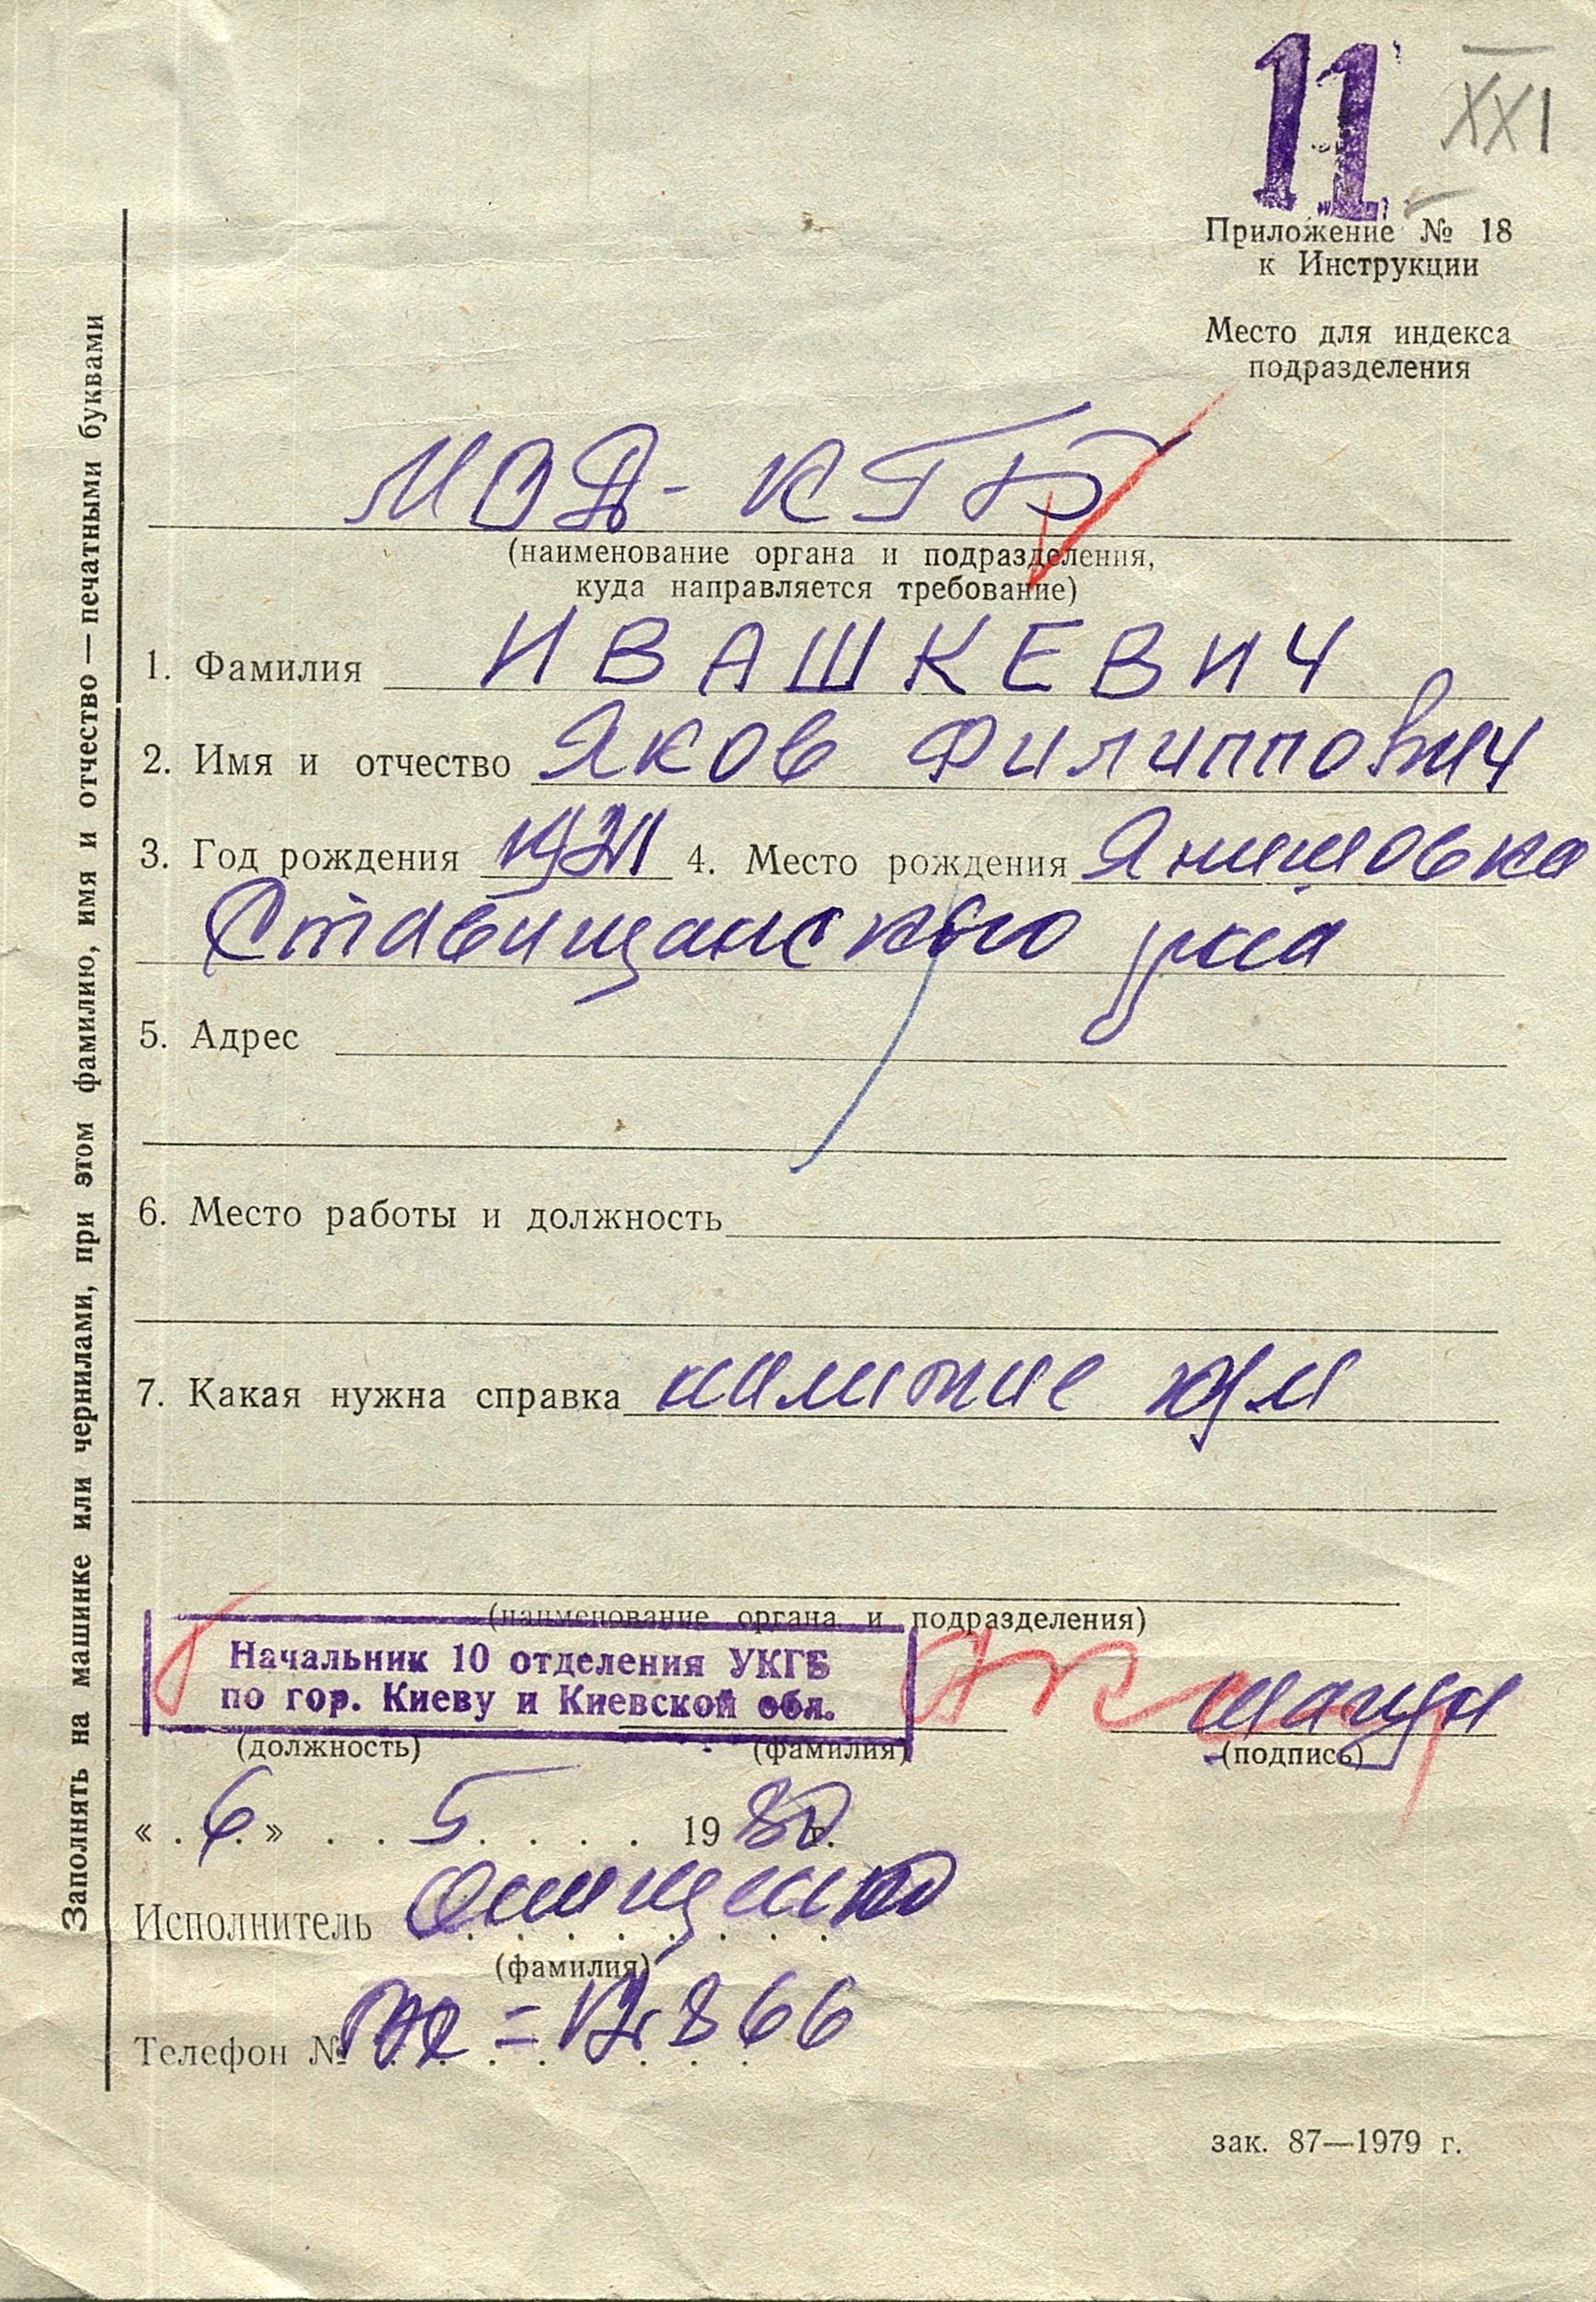 11
XXI
Приложение № 18
к Инструкции
Место для индекса
подразделения
Заполнять на машинке или чернилами, при этом фамилию, имя и отчество — печатными буквами
КГБ
(наименование органа и подразделения,
куда направляется требование)
1. Фамилия ИВАШКЕВИЧ
2. Имя и отчество Яков Филиппович
3. Год рождения 4. Место рождения Янишовка
Ставищанского р-на
5. Адрес
6. Место работы и должность
7. Какая нужна справка
(наименование органа и подразделения)
Начальник 10 отделения УКГБ
по гор. Киеву и Киевской обл.
(должность) (фамилия) (подпись)
« 6 » 5 1980 г.
Исполнитель Онищенко
(фамилия)
Телефон №
зак. 87—1979 г.